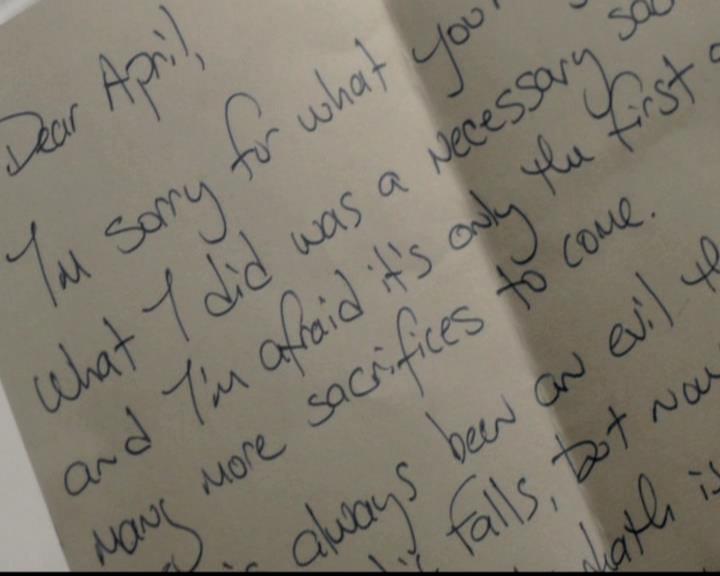 Dear April,
I'm sorry for what you'
What I did was a necessary sac
and I'm afraid it's only the first
many more sacrifices to come.
always been an evil th
falls, but now
is